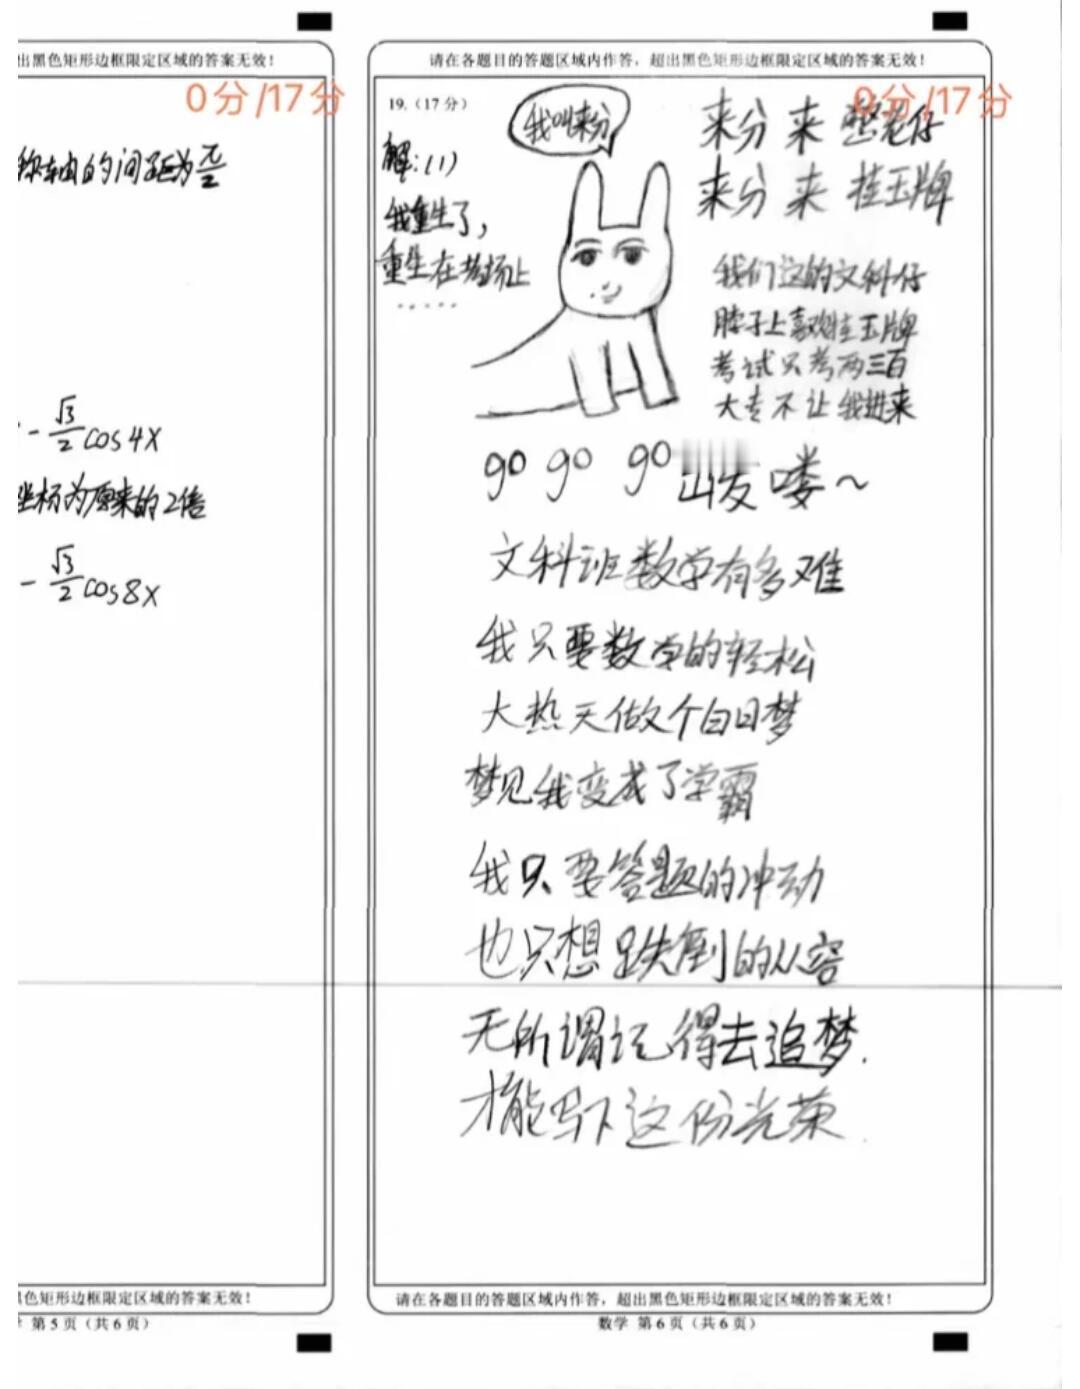 出黑色矩形边框限定区域的答案无效！
0分/17分
称轴的间距为π/2
-√3/2 cos4x
坐标为原来的2倍
-√3/2 cos8x
黑色矩形边框限定区域的答案无效！
第5页（共6页）
请在各题目的答题区域内作答，超出黑色矩形边框限定区域的答案无效！
0分/17分
19.（17分）
我叫来分
解:(1)
我重生了,
重生在考场上
......
来分 来 憨老仔
来分 来 挂玉牌
我们这的文科仔
脖子上喜欢挂玉牌
考试只考两三百
大专不让我进来
go go go 出发喽~
文科班数学有多难
我只要数学的轻松
大热天做个白日梦
梦见我变成了学霸
我只要答题的冲动
也只想跌倒的从容
无所谓记得去追梦.
才能写下这份光荣.
请在各题目的答题区域内作答，超出黑色矩形边框限定区域的答案无效！
数学 第6页（共6页）